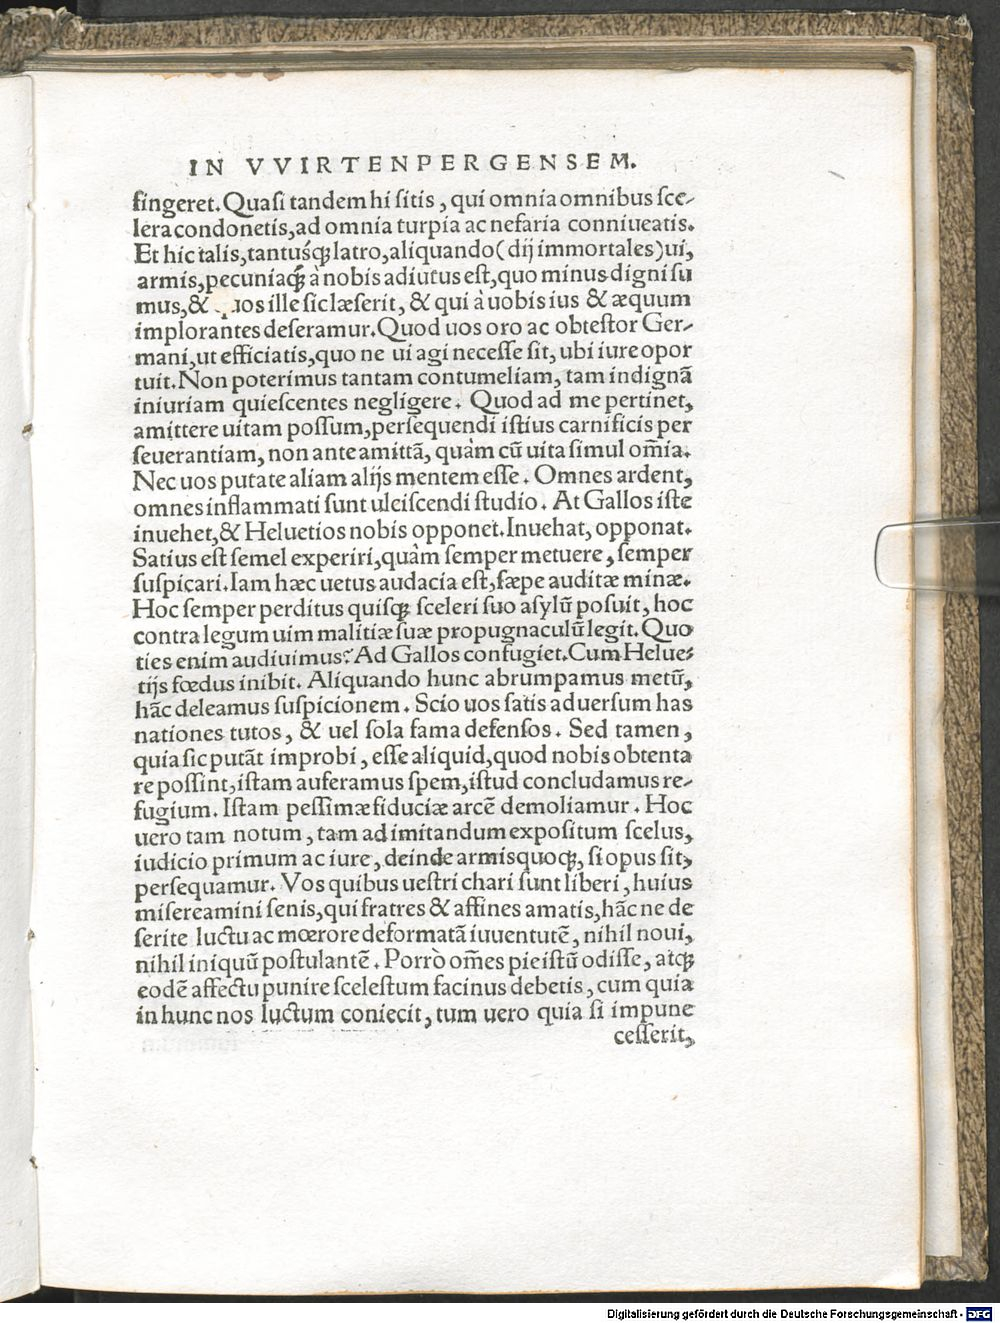 IN VVIRTENPERGENSEM.
fingeret. Quasi tandem hi sitis, qui omnia omnibus sce-
lera condonetis, ad omnia turpia ac nefaria conniueatis.
Et hic talis, tantusq́ꝫ latro, aliquando (dij immortales) ui,
armis, pecuniaq́ꝫ à nobis adiutus est, quo minus digni su
mus, & quos ille sic læserit, & qui à uobis ius & æquum
implorantes deseramur. Quod uos oro ac obtestor Ger-
mani, ut efficiatis, quo ne ui agi necesse sit, ubi iure opor
tuit. Non poterimus tantam contumeliam, tam indignã
iniuriam quiescentes negligere. Quod ad me pertinet,
amittere uitam possum, persequendi istius carnificis per
seuerantiam, non ante amittã, quàm cũ uita simul om̃ia.
Nec uos putate aliam alijs mentem esse. Omnes ardent,
omnes inflammati sunt ulciscendi studio. At Gallos iste
inuehet, & Heluetios nobis opponet. Inuehat, opponat.
Satius est semel experiri, quàm semper metuere, semper
suspicari. Iam hæc uetus audacia est, sæpe auditæ minæ.
Hoc semper perditus quisqꝫ sceleri suo asylũ posuit, hoc
contra legum uim malitiæ suæ propugnaculũ legit. Quo
ties enim audiuimus? Ad Gallos confugiet. Cum Helue-
tijs fœdus inibit. Aliquando hunc abrumpamus metũ,
hãc deleamus suspicionem. Scio uos satis aduersum has
nationes tutos, & uel sola fama defensos. Sed tamen,
quia sic putãt improbi, esse aliquid, quod nobis obtenta
re possint, istam auferamus spem, istud concludamus re-
fugium. Istam pessimæ fiduciæ arcẽ demoliamur. Hoc
uero tam notum, tam ad imitandum expositum scelus,
iudicio primum ac iure, deinde armis quoqꝫ, si opus sit,
persequamur. Vos quibus uestri chari sunt liberi, huius
misereamini senis, qui fratres & affines amatis, hãc ne de
serite luctu ac mœrore deformatã iuuentutẽ, nihil noui,
nihil iniquũ postulantẽ. Porrò om̃es pie istũ odisse, atqꝫ
eodẽ affectu punire scelestum facinus debetis, cum quia
in hunc nos luctum coniecit, tum uero quia si impune
cesserit,
Digitalisierung gefördert durch die Deutsche Forschungsgemeinschaft - DFG